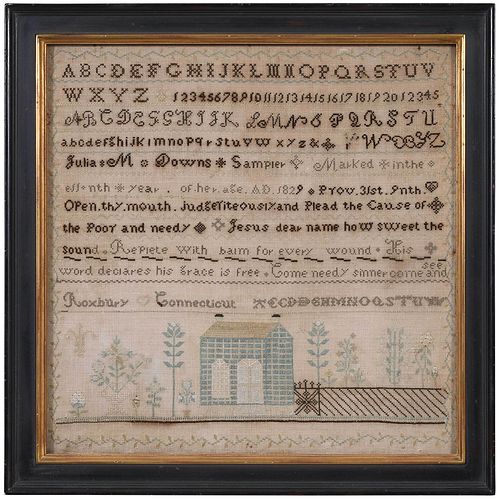 ABCDEFGHIJKLMNOPQRSTUV
WXYZ 1234567891011121314151617181920 12345
ABCDEFGHIJK LMNOPQRSTU
abcdefghijklmnopqrstuvwxyz& VWXYZ
Julia M Downs Sampler Marked in the
year of her age. AD. 1829 Prov. 31st. 9nth
Open.thy.mouth. and Plead the Cause of
the Poor and needy Jesus dear name how sweet the
sound. Replete with balm for every wound His
see
word declares his grace is free. Come needy sinner come and
Roxbury Connecticut